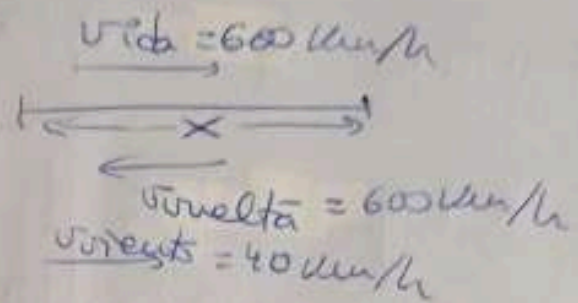 vida = 600 km/h
x
vvuelta = 600 km/h
vviento = 40 km/h